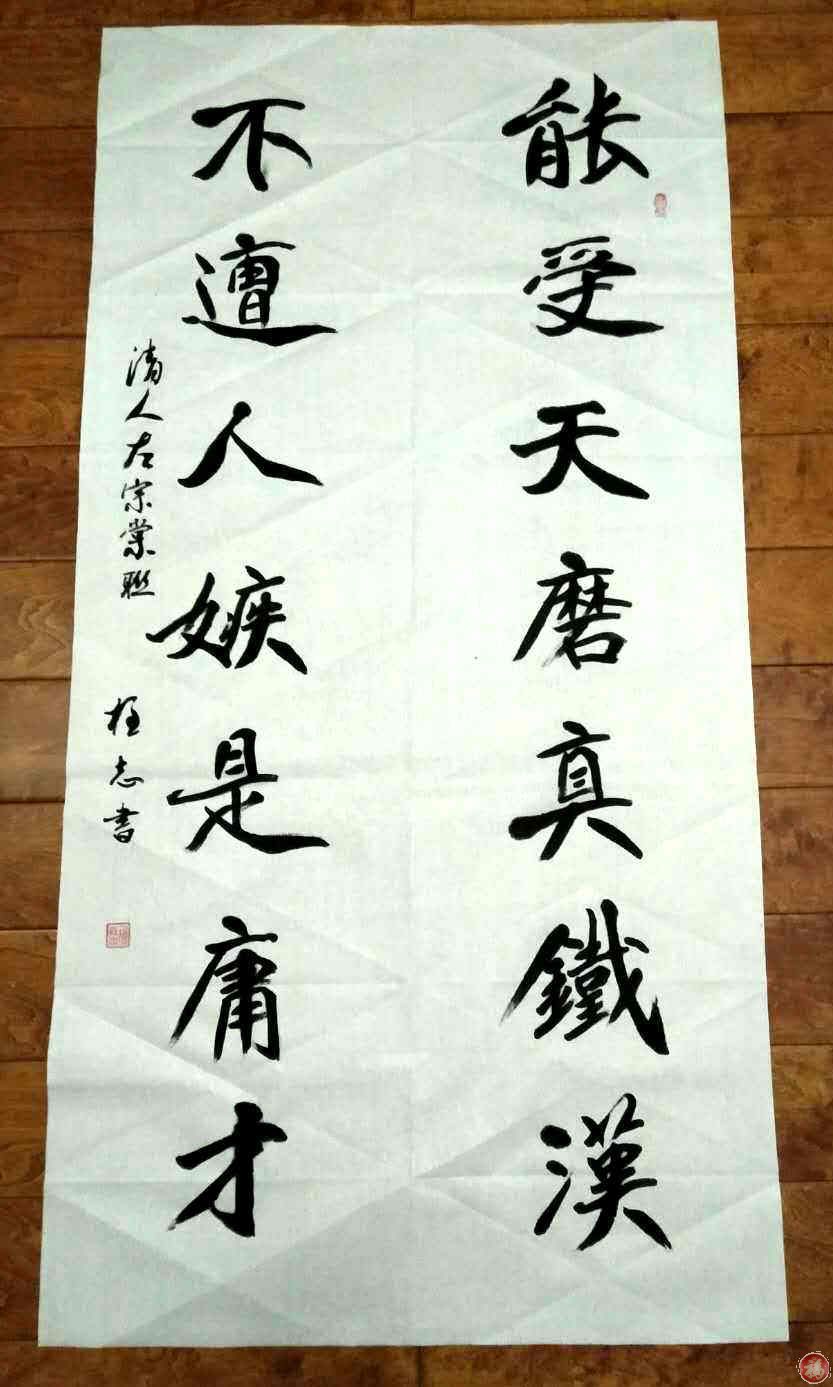 能受天磨真鐵漢
不遭人嫉是庸才
清人左宗棠聯
志書
福